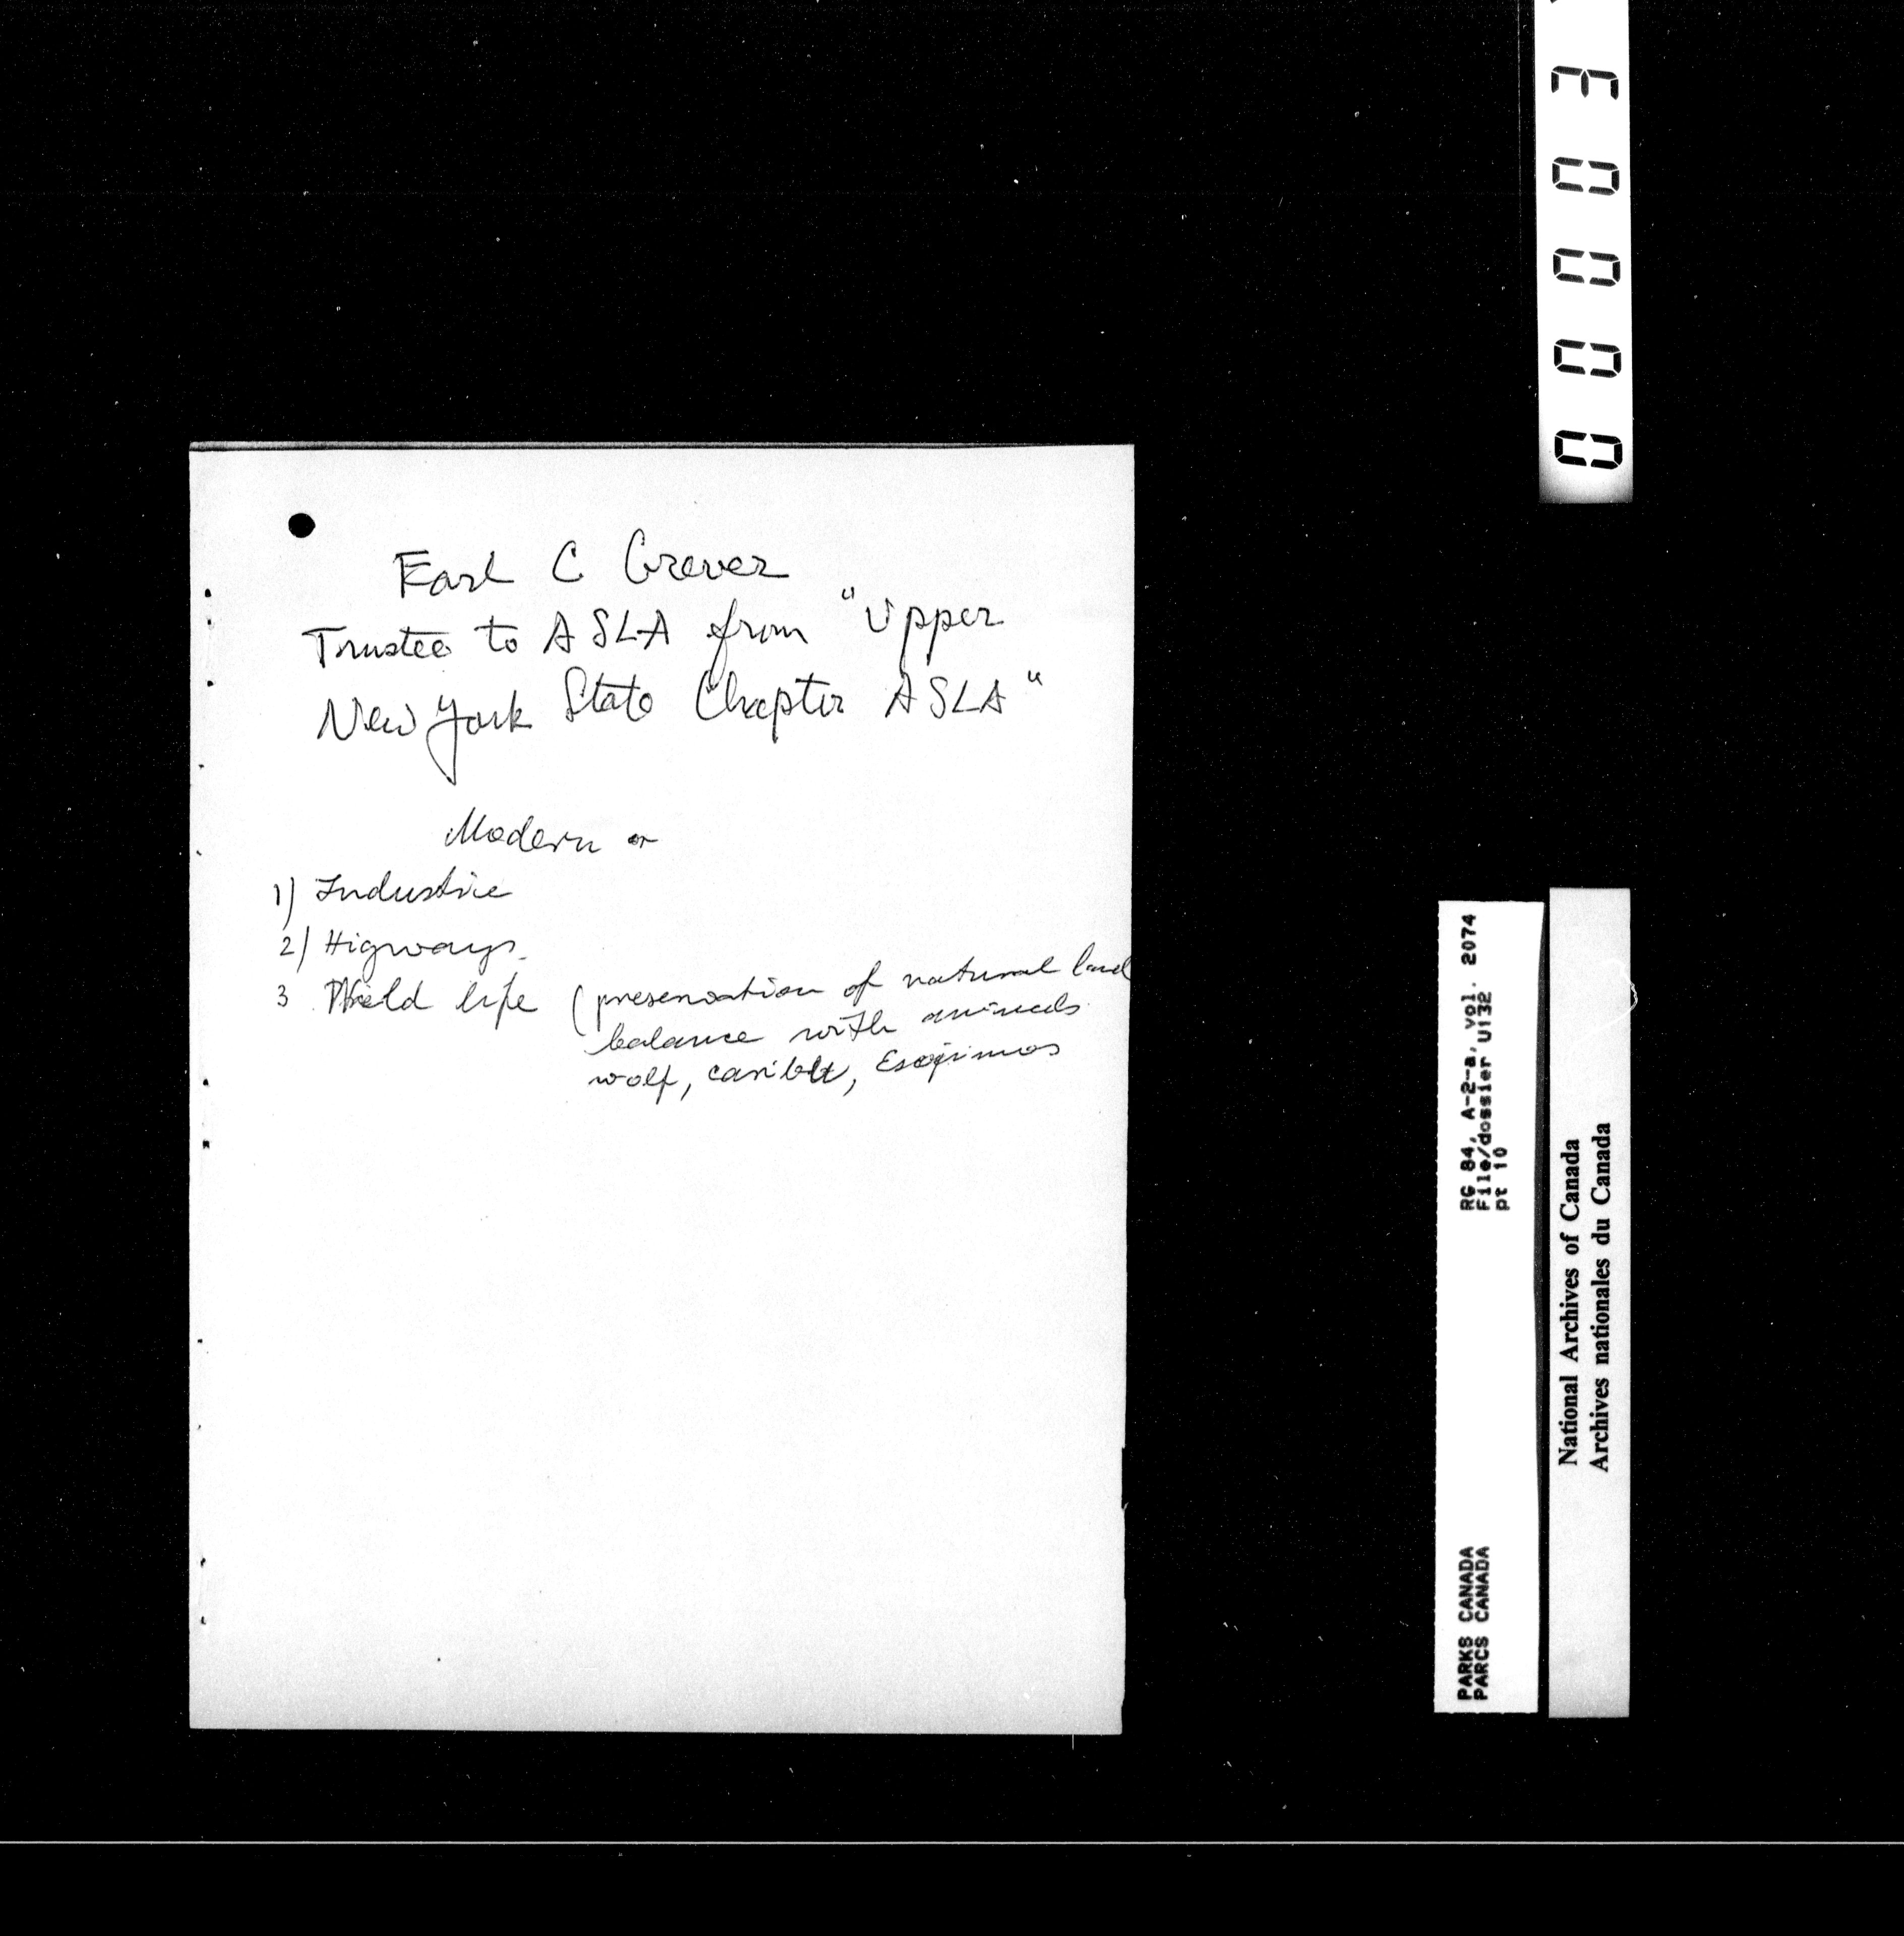 Earl C Grever
Trustee to ASLA from "Upper
New York State Chapter ASLA"
Modern or
1) Industrie
2) Higways.
3 Wield life (preservation of natural land
balance with animals
wolf, caribu, Esqimos
RG 84, A-2-a, vol. 2074
File/dossier U132
pt 10
PARKS CANADA
PARCS CANADA
National Archives of Canada
Archives nationales du Canada